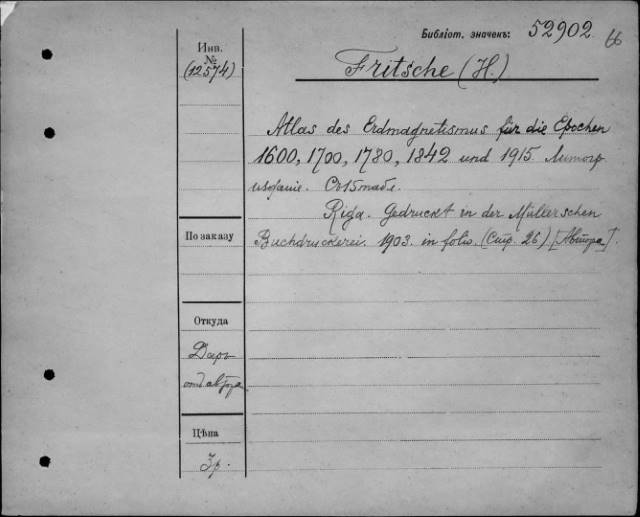 Библіот. значекъ: 52902
66
Инв.
№
(12574)
Fritsche (H.)
Atlas des Erdmagnetismus für die Epochen
1600, 1700, 1780, 1842 und 1915. Литогр
. Со 15 табл.
Riga. Gedruckt in der Müllerschen
Buchdruckerei. 1903. in folio. (Стр. 26) [Автора].
По заказу
Откуда
Даръ
отъ автора
Цѣна
3 р.